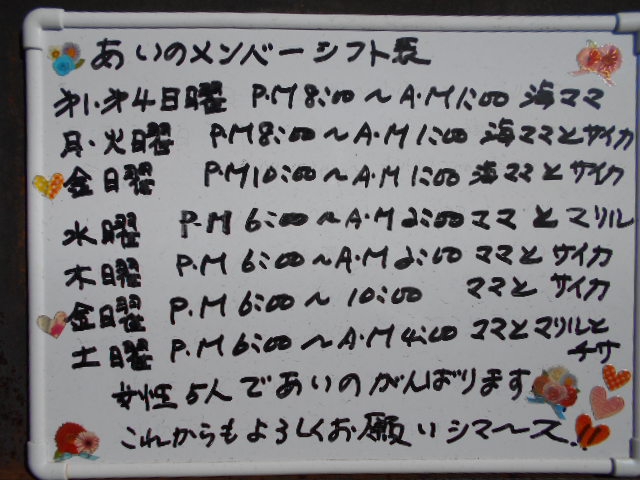 あいのメンバーシフト表
才1・才4日曜 P.M8:00～A.M1:00 海ママ
月・火日曜 P.M8:00～A.M1:00 海ママとサイカ
金日曜 P.M10:00～A.M1:00 海ママとサイカ
水曜 P.M6:00～A.M2:00 ママとマリル
木日曜 P.M6:00～A.M2:00 ママとサイカ
金日曜 P.M6:00～10:00 ママとサイカ
土日曜 P.M6:00～A.M4:00 ママとマリルと
チサ
女性5人であいのがんばります
これからもよろしくお願いシマース.